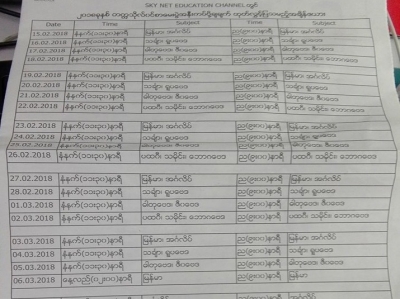 SKY NET EDUCATION CHANNEL တွင်
၂၀၁၈ခုနှစ် တက္ကသိုလ်ဝင်စာမေးပွဲ
Date Time Subject Time Subject
15.02.2018 နံနက်(၁၁း၃၀)နာရီ မြန်မာ၊ အင်္ဂလိပ် ည(၉း၀၀)နာရီ မြန်မာ၊ အင်္ဂလိပ်
16.02.2018 နံနက်(၁၁း၃၀)နာရီ သင်္ချာ၊ ရူပဗေဒ ည(၉း၀၀)နာရီ သင်္ချာ၊ ရူပဗေဒ
17.02.2018 နံနက်(၁၁း၃၀)နာရီ ဓါတုဗေဒ၊ ဇီဝဗေဒ ည(၉း၀၀)နာရီ ဓါတုဗေဒ၊ ဇီဝဗေဒ
18.02.2018 နံနက်(၁၁း၃၀)နာရီ ပထဝီ၊ သမိုင်း၊ ဘောဂဗေဒ ည(၉း၀၀)နာရီ ပထဝီ၊ သမိုင်း၊ ဘောဂဗေဒ
19.02.2018 နံနက်(၁၁း၃၀)နာရီ မြန်မာ၊ အင်္ဂလိပ် ည(၉း၀၀)နာရီ မြန်မာ၊ အင်္ဂလိပ်
20.02.2018 နံနက်(၁၁း၃၀)နာရီ သင်္ချာ၊ ရူပဗေဒ ည(၉း၀၀)နာရီ သင်္ချာ၊ ရူပဗေဒ
21.02.2018 နံနက်(၁၁း၃၀)နာရီ ဓါတုဗေဒ၊ ဇီဝဗေဒ ည(၉း၀၀)နာရီ ဓါတုဗေဒ၊ ဇီဝဗေဒ
22.02.2018 နံနက်(၁၁း၃၀)နာရီ ပထဝီ၊ သမိုင်း၊ ဘောဂဗေဒ ည(၉း၀၀)နာရီ ပထဝီ၊ သမိုင်း၊ ဘောဂဗေဒ
23.02.2018 နံနက်(၁၁း၃၀)နာရီ မြန်မာ၊ အင်္ဂလိပ် ည(၉း၀၀)နာရီ မြန်မာ၊ အင်္ဂလိပ်
24.02.2018 နံနက်(၁၁း၃၀)နာရီ သင်္ချာ၊ ရူပဗေဒ ည(၉း၀၀)နာရီ သင်္ချာ၊ ရူပဗေဒ
25.02.2018 နံနက်(၁၁း၃၀)နာရီ ဓါတုဗေဒ၊ ဇီဝဗေဒ ည(၉း၀၀)နာရီ ဓါတုဗေဒ၊ ဇီဝဗေဒ
26.02.2018 နံနက်(၁၁း၃၀)နာရီ ပထဝီ၊ သမိုင်း၊ ဘောဂဗေဒ ည(၉း၀၀)နာရီ ပထဝီ၊ သမိုင်း၊ ဘောဂဗေဒ
27.02.2018 နံနက်(၁၁း၃၀)နာရီ မြန်မာ၊ အင်္ဂလိပ် ည(၉း၀၀)နာရီ မြန်မာ၊ အင်္ဂလိပ်
28.02.2018 နံနက်(၁၁း၃၀)နာရီ သင်္ချာ၊ ရူပဗေဒ ည(၉း၀၀)နာရီ သင်္ချာ၊ ရူပဗေဒ
01.03.2018 နံနက်(၁၁း၃၀)နာရီ ဓါတုဗေဒ၊ ဇီဝဗေဒ ည(၉း၀၀)နာရီ ဓါတုဗေဒ၊ ဇီဝဗေဒ
02.03.2018 နံနက်(၁၁း၃၀)နာရီ ပထဝီ၊ သမိုင်း၊ ဘောဂဗေဒ ည(၉း၀၀)နာရီ ပထဝီ၊ သမိုင်း၊ ဘောဂဗေဒ
03.03.2018 နံနက်(၁၁း၃၀)နာရီ မြန်မာ၊ အင်္ဂလိပ် ည(၉း၀၀)နာရီ မြန်မာ၊ အင်္ဂလိပ်
04.03.2018 နံနက်(၁၁း၃၀)နာရီ သင်္ချာ၊ ရူပဗေဒ ည(၉း၀၀)နာရီ သင်္ချာ၊ ရူပဗေဒ
05.03.2018 နံနက်(၁၁း၃၀)နာရီ ဓါတုဗေဒ၊ ဇီဝဗေဒ ည(၉း၀၀)နာရီ ဓါတုဗေဒ၊ ဇီဝဗေဒ
06.03.2018 နေ့လည်(၁၂း၀၀)နာရီ မြန်မာ ည(၉း၀၀)နာရီ မြန်မာ